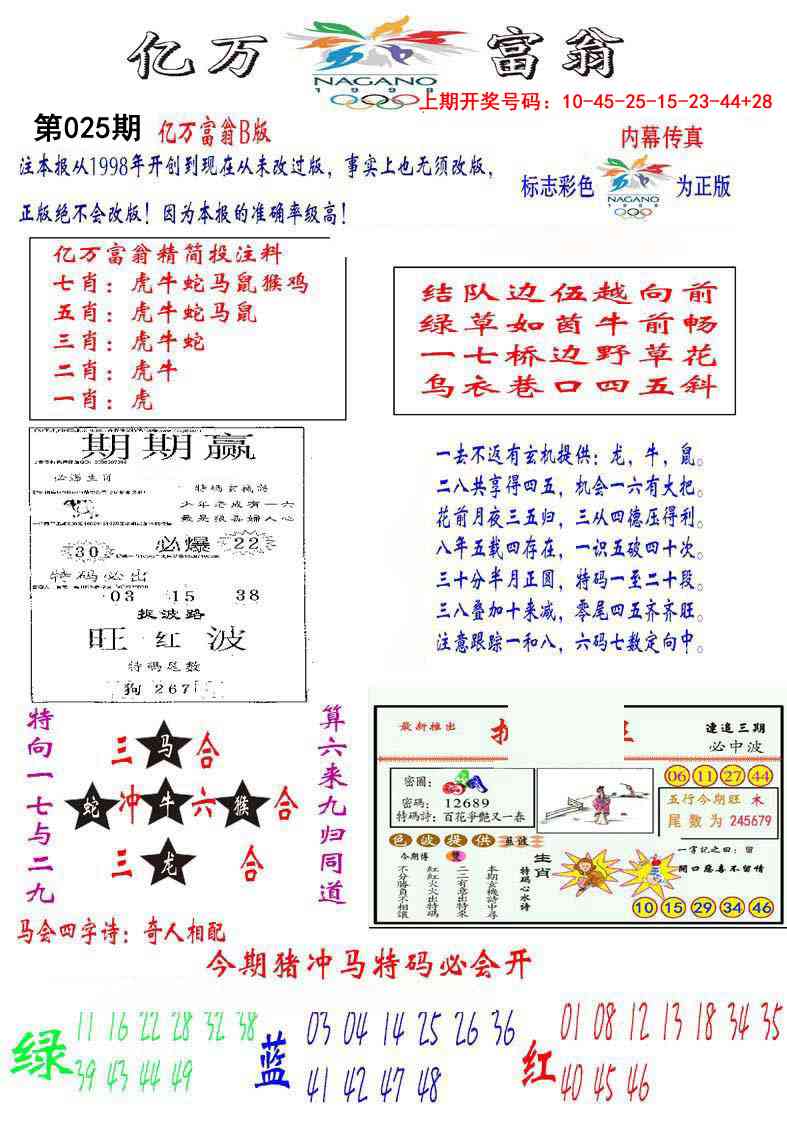 亿万富翁
NAGANO
1998
上期开奖号码：10-45-25-15-23-44+28
第025期 亿万富翁B版
内幕传真
注本报从1998年开创到现在从未改过版，事实上也无须改版，
标志彩色 NAGANO 1998 为正版
正版绝不会改版！因为本报的准确率级高！
亿万富翁精简投注料
七肖：虎牛蛇马鼠猴鸡
五肖：虎牛蛇马鼠
三肖：虎牛蛇
二肖：虎牛
一肖：虎
结队边伍越向前
绿草如茵牛前畅
一七桥边野草花
乌衣巷口四五斜
期期赢
必遇生肖
特码玄机诗
少年老成有一六
最是狼毒妇人心
30 必爆 22
特码必出
03 15 38
捉波路
旺红波
特码尾数
狗267
一去不返有玄机提供：龙，牛，鼠。
二八共享得四五，机会一六有大把。
花前月夜三五归，三从四德压得利。
八年五载四存在，一识五破四十次。
三十分半月正圆，特码一至二十段。
三八叠加十来减，零尾四五齐齐旺。
注意跟踪一和八，六码七数定向中。
特向一七与二九
三马合
蛇冲牛六猴合
三龙合
算六来九归同道
最新推出
速追三期
必中波
密圈：
密码：12689
特码詩：百花爭艷又一春
06 11 27 44
五行今期旺 木
尾数为 245679
色波提供 蓝波
今期博 雙
不分勝負不相讓
紅紅火火出特碼
二三有意出特來
本期玄機詩中尋
特码心水诗
生肖
一字記之曰：留
開口惡毒不留情
10 15 29 34 46
马会四字诗：奇人相配
今期猪冲马特码必会开
绿 11 16 22 28 32 38
39 43 44 49
蓝 03 04 14 25 26 36
41 42 47 48
红 01 08 12 13 18 34 35
40 45 46